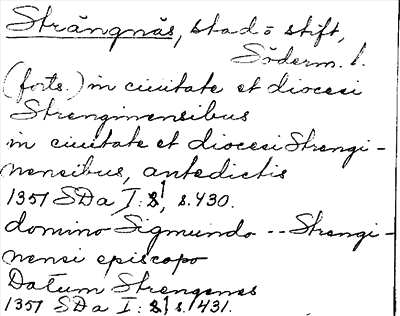 Strängnäs, stad o stift,
Söderm. l.
(forts.) in ciuitate et diocesi
Strenginensibus
in ciuitate et diocesi Strengi-
nensibus, antedictis
1351 SDa I: 8¹, s. 430.
domino Sigmundo -- Strengi-
nensi episcopo
Datum Strengenes
1351 SDa I: 8¹ s. 431.